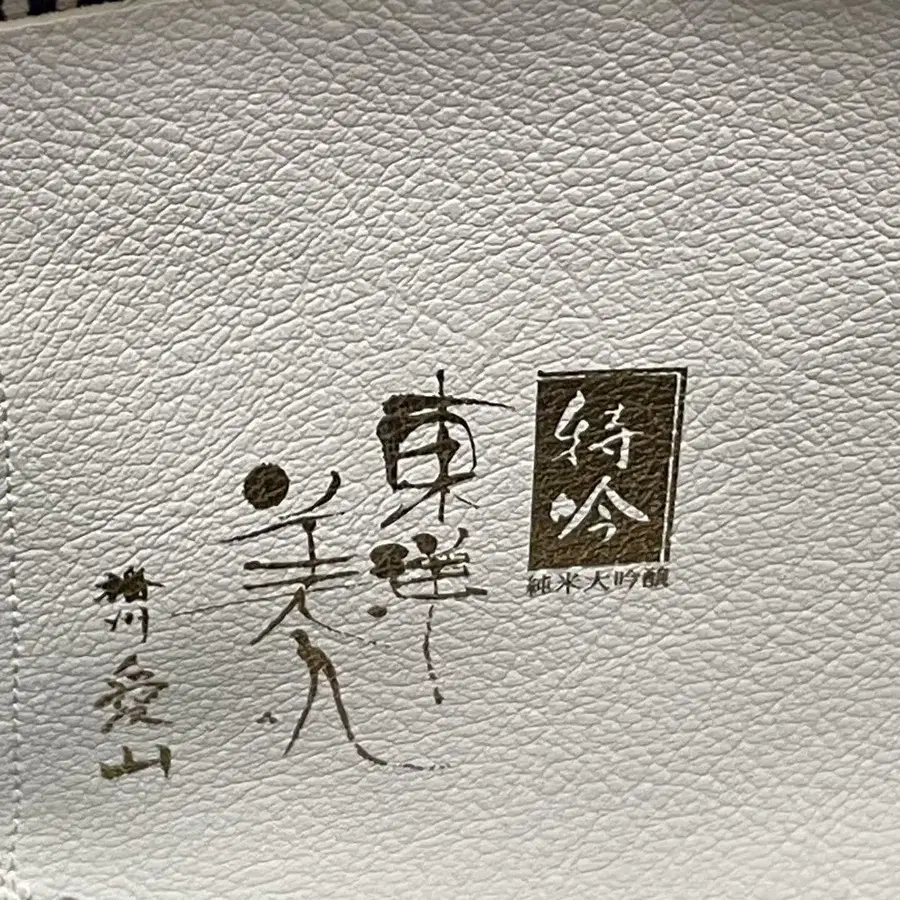 特吟
純米大吟醸
東洋
美人
播州
愛山